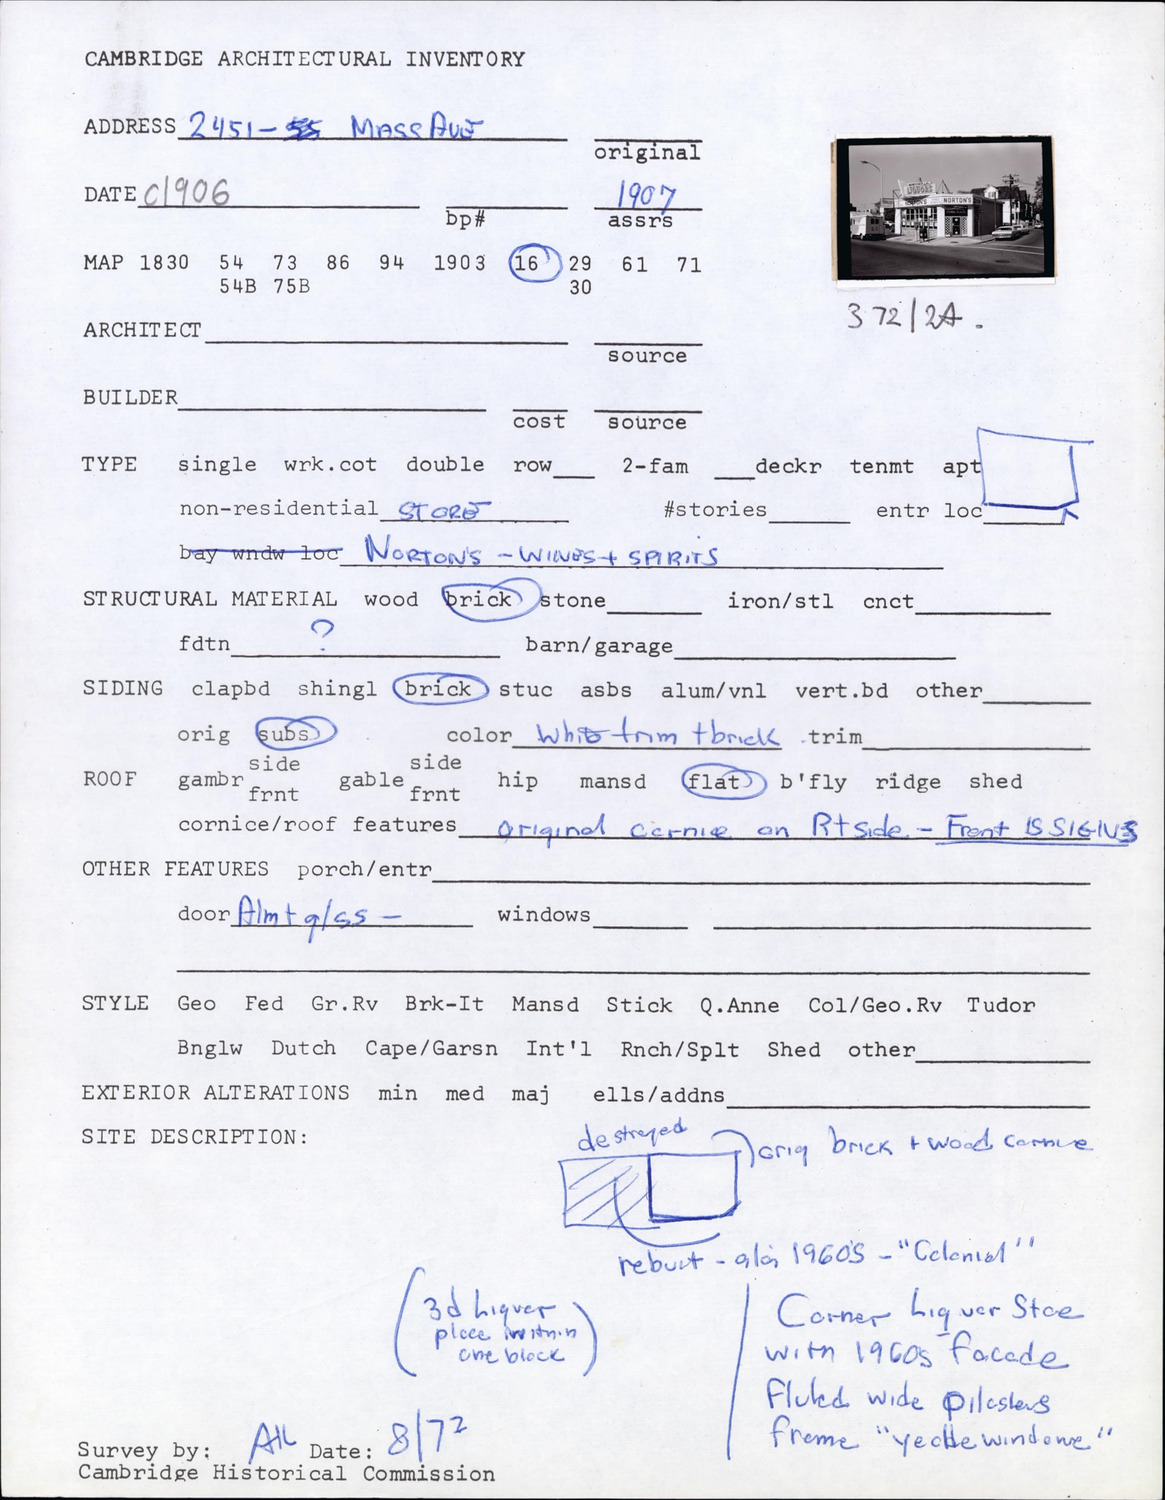 CAMBRIDGE ARCHITECTURAL INVENTORY
ADDRESS 2451- 55 Mass Ave
original
DATE c1906 1907
bp# assrs
MAP 1830 54 73 86 94 1903 16 29 61 71
54B 75B 30
NORTON'S
372/2A.
ARCHITECT
source
BUILDER
cost source
TYPE single wrk.cot double row 2-fam deckr tenmt apt
non-residential STORE #stories entr loc
bay wndw loc NORTON'S - WINES + SPIRITS
STRUCTURAL MATERIAL wood brick stone iron/stl cnct
fdtn ? barn/garage
SIDING clapbd shingl brick stuc asbs alum/vnl vert.bd other
orig subs color White trim + brick trim
side side
ROOF gambr gable hip mansd flat b'fly ridge shed
frnt frnt
cornice/roof features original cornice on Rt side - Front IS SIGNS
OTHER FEATURES porch/entr
door Alm + glss - windows
STYLE Geo Fed Gr.Rv Brk-It Mansd Stick Q.Anne Col/Geo.Rv Tudor
Bnglw Dutch Cape/Garsn Int'l Rnch/Splt Shed other
EXTERIOR ALTERATIONS min med maj ells/addns
SITE DESCRIPTION:
destroyed
orig brick + wood cornice
rebuilt - a la 1960's - "Colonial"
(3d Liquor
place within
one block)
Corner Liquor Store
with 1960s facade
fluted wide pilasters
frame "yecchewindowe"
Survey by: Date: 8/72
Cambridge Historical Commission